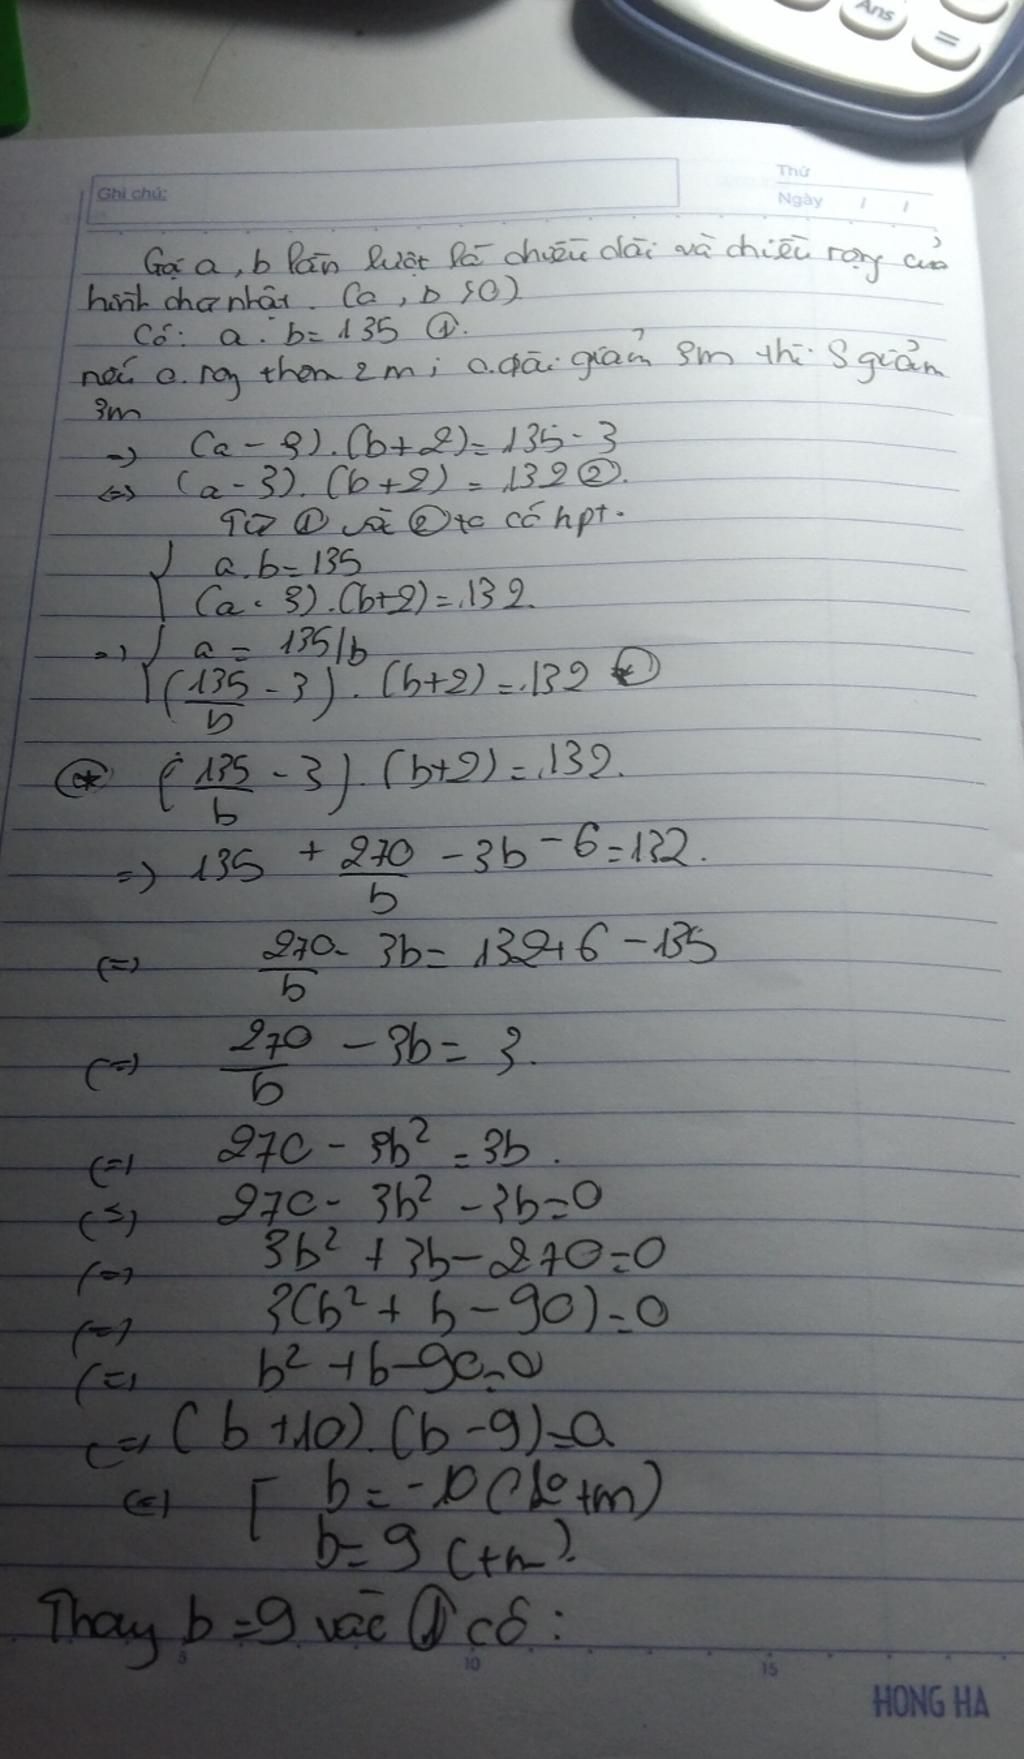 Ans
=
Ghi chú:
Thứ
Ngày / /
Gọi a, b lần lượt là chiều dài và chiều rộng của
hình chữ nhật. (a, b >0)
Có: a . b = 135 ①.
nếu c. rộng thêm 2m; c.dài giảm 3m thì S giảm
3m
=> (a - 3).(b+2) = 135 - 3
<=> (a - 3). (b+2) = 132 ②.
Từ ① và ② ta có hpt.
{ a.b = 135
(a - 3).(b+2) = 132.
=> { a = 135/b
(135/b - 3). (b+2) = 132 (*)
(*) (135/b - 3). (b+2) = 132.
=> 135 + 270/b - 3b - 6 = 132.
(=) 270/b - 3b = 132+6 - 135
(=) 270/b - 3b = 3.
(=) 270 - 3b² = 3b.
(=) 270 - 3b² - 3b = 0
(=) 3b² + 3b - 270 = 0
(=) 3(b² + b - 90) = 0
(=) b² + b - 90 = 0
(=) (b + 10).(b - 9) = 0
(=) [ b = -10 (ko tm)
b = 9 (tm).
Thay b = 9 vào ① có:
5 10 15
HONG HA